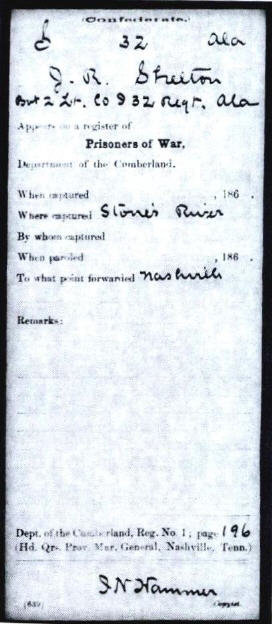 (Confederate.)
S 32 Ala
J. R. Stretton
Bvt 2 Lt. Co I 32 Regt. Ala
Appears on a register of
Prisoners of War,
Department of the Cumberland.
When captured , 186 .
Where captured Stone's River
By whom captured
When paroled , 186 .
To what point forwarded Nashville
Remarks:
Dept. of the Cumberland, Reg. No. 1; page 196
(Hd. Qrs. Prov. Mar. General, Nashville, Tenn.)
J N Hammer
(639) Copyist.